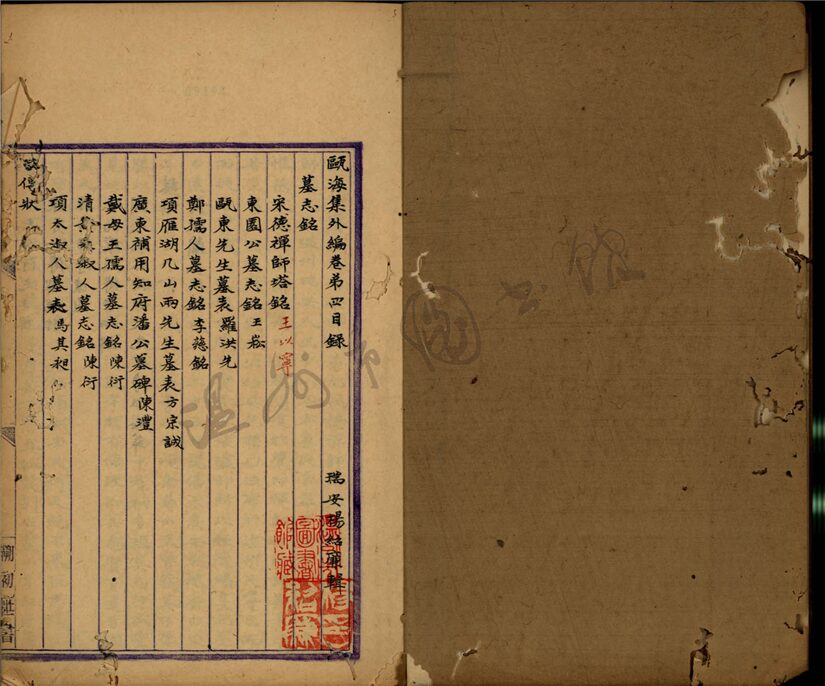 甌海集外編卷第四目錄
瑞安楊紹廉輯
墓志銘
宋德禪師塔銘 王以寧
東園公墓志銘 王崧
甌東先生墓表 羅洪先
鄭孺人墓志銘 李慈銘
項雁湖几山兩先生墓表 方宗誠
廣東補用知府潘公墓碑 陳澧
戴母王孺人墓志銘 陳衍
清 淑人墓志銘 陳衍
項太淑人墓表 馬其昶
傳狀
溫州市圖書館
圖書館藏